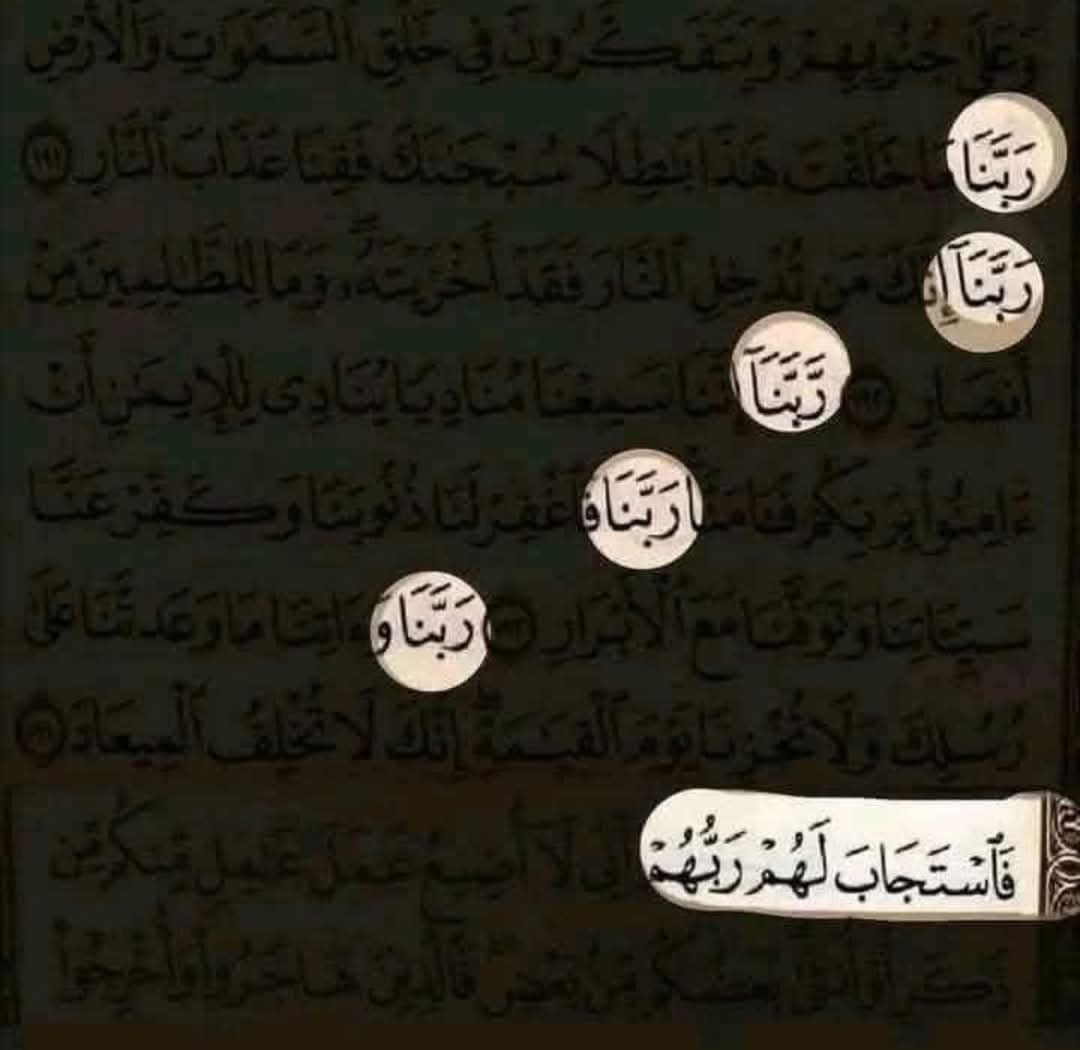 وَعَلَىٰ جُنُوبِهِمْ وَيَتَفَكَّرُونَ فِي خَلْقِ السَّمَٰوَٰتِ وَالْأَرْضِ
رَبَّنَا مَا خَلَقْتَ هَٰذَا بَٰطِلًا سُبْحَٰنَكَ فَقِنَا عَذَابَ النَّارِ ١٩١
رَبَّنَآ إِنَّكَ مَن تُدْخِلِ ٱلنَّارَ فَقَدْ أَخْزَيْتَهُۥ وَمَا لِلظَّٰلِمِينَ مِنْ
أَنصَارٍ ١٩٢ رَّبَّنَآ إِنَّنَا سَمِعْنَا مُنَادِيًا يُنَادِى لِلْإِيمَٰنِ أَنْ
ءَامِنُوا۟ بِرَبِّكُمْ فَـَٔامَنَّا رَبَّنَا فَٱغْفِرْ لَنَا ذُنُوبَنَا وَكَفِّرْ عَنَّا
سَيِّـَٔاتِنَا وَتَوَفَّنَا مَعَ ٱلْأَبْرَارِ ١٩٣ رَبَّنَا وَءَاتِنَا مَا وَعَدتَّنَا عَلَىٰ
رُسُلِكَ وَلَا تُخْزِنَا يَوْمَ ٱلْقِيَٰمَةِ إِنَّكَ لَا تُخْلِفُ ٱلْمِيعَادَ
فَٱسْتَجَابَ لَهُمْ رَبُّهُمْ أَنِّى لَآ أُضِيعُ عَمَلَ عَٰمِلٍ مِّنكُم مِّن
ذَكَرٍ أَوْ أُنثَىٰ بَعْضُكُم مِّنۢ بَعْضٍ فَٱلَّذِينَ هَاجَرُوا۟ وَأُخْرِجُوا۟